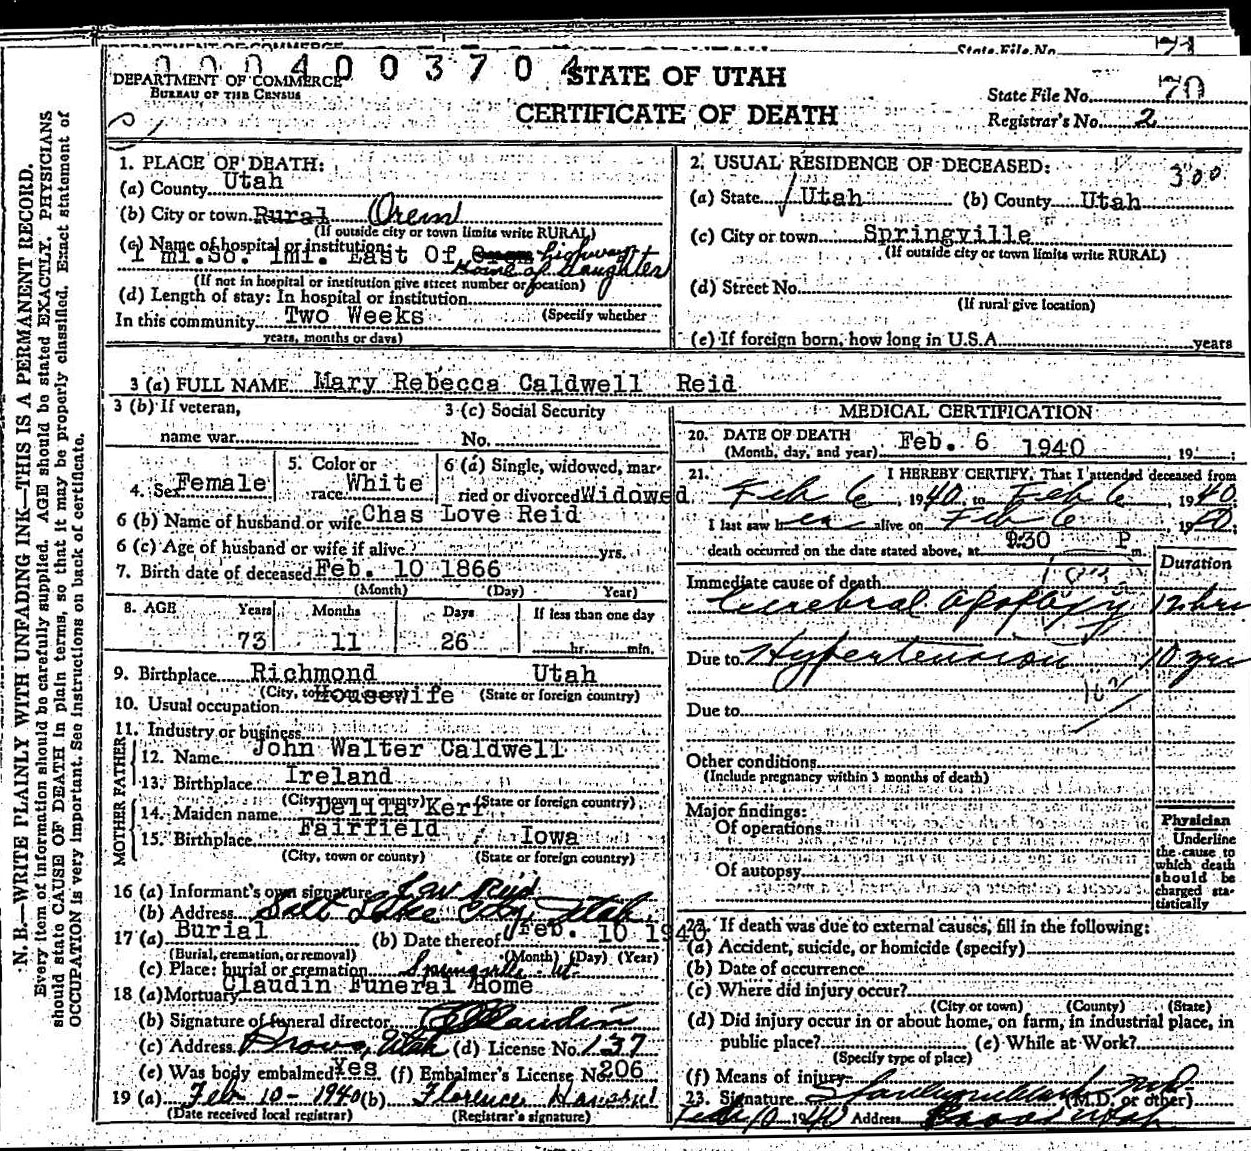 State File No. 71
0004003704
DEPARTMENT OF COMMERCE
BUREAU OF THE CENSUS
STATE OF UTAH
CERTIFICATE OF DEATH
State File No. 70
Registrar's No. 2
1. PLACE OF DEATH:
(a) County Utah
(b) City or town Rural Orem
(If outside city or town limits write RURAL)
(c) Name of hospital or institution:
1 mi.So. 1mi. East Of Orem highway
Home of Daughter
(If not in hospital or institution give street number or location)
(d) Length of stay: In hospital or institution
In this community Two Weeks (Specify whether
years, months or days)
2. USUAL RESIDENCE OF DECEASED:
300
(a) State Utah (b) County Utah
(c) City or town Springville
(If outside city or town limits write RURAL)
(d) Street No.
(If rural give location)
(e) If foreign born, how long in U.S.A. years
3 (a) FULL NAME Mary Rebecca Caldwell Reid
3 (b) If veteran,
name war
3 (c) Social Security
No.
4. Sex Female
5. Color or
race White
6 (a) Single, widowed, mar-
ried or divorced Widowed
6 (b) Name of husband or wife Chas Love Reid
6 (c) Age of husband or wife if alive yrs.
7. Birth date of deceased Feb. 10 1866
(Month) (Day) Year)
8. AGE Years Months Days If less than one day
73 11 26 hr. min.
9. Birthplace Richmond Utah
(City, town (State or foreign country)
10. Usual occupation Housewife
11. Industry or business
FATHER
12. Name John Walter Caldwell
13. Birthplace Ireland
(City, town or county) (State or foreign country)
MOTHER
14. Maiden name Delila Kerr
15. Birthplace Fairfield Iowa
(City, town or county) (State or foreign country)
16 (a) Informant's own signature Reid
(b) Address Salt Lake City, Utah
17 (a) Burial (b) Date thereof Feb. 10 1940
(Burial, cremation, or removal) (Month) (Day) (Year)
(c) Place: burial or cremation Springville Ut
18 (a) Mortuary Claudin Funeral Home
(b) Signature of funeral director Claudin
(c) Address Provo, Utah (d) License No. 137
(e) Was body embalmed Yes (f) Embalmer's License No. 206
19 (a) Feb 10 - 1940 (b) Florence
(Date received local registrar) (Registrar's signature)
MEDICAL CERTIFICATION
20. DATE OF DEATH
(Month, day, and year) Feb. 6 1940, 19
21. I HEREBY CERTIFY, That I attended deceased from
Feb 6, 1940, to Feb 6, 1940
I last saw her alive on Feb 6, 1940;
death occurred on the date stated above, at 9:30 P m.
Duration
Immediate cause of death
Cerebral apoplexy 12 hrs
Due to Hypertension 10 yrs
Due to
Other conditions
(Include pregnancy within 3 months of death)
Major findings:
Of operations
Of autopsy
Physician
Underline
the cause to
which death
should be
charged sta-
tistically
22. If death was due to external causes, fill in the following:
(a) Accident, suicide, or homicide (specify)
(b) Date of occurrence
(c) Where did injury occur?
(City or town) (County) (State)
(d) Did injury occur in or about home, on farm, in industrial place, in
public place? (e) While at Work?
(Specify type of place)
(f) Means of injury
23. Signature M.D. (M.D. or other)
Feb 10 1940 Address Provo Utah
N. B.—WRITE PLAINLY WITH UNFADING INK—THIS IS A PERMANENT RECORD.
Every item of information should be carefully supplied. AGE should be stated EXACTLY. PHYSICIANS
should state CAUSE OF DEATH in plain terms, so that it may be properly classified. Exact statement of
OCCUPATION is very important. See instructions on back of certificate.